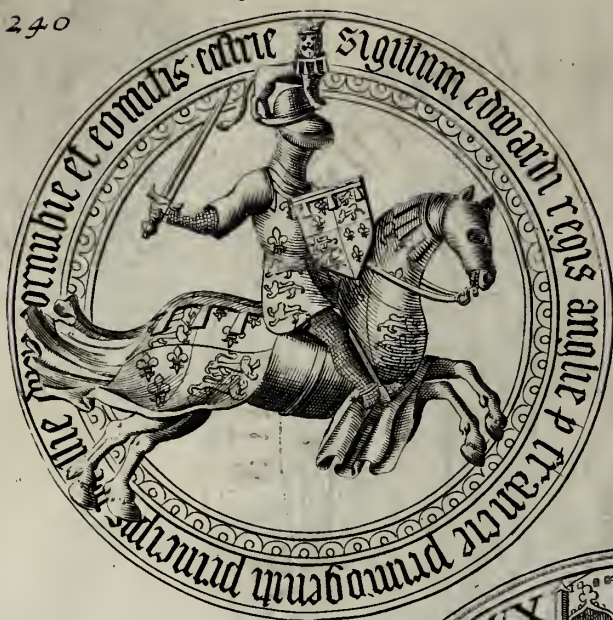 240
sigillum edwardi regis anglie p francie primogeniti principis llie ornubie et comitis cestrie